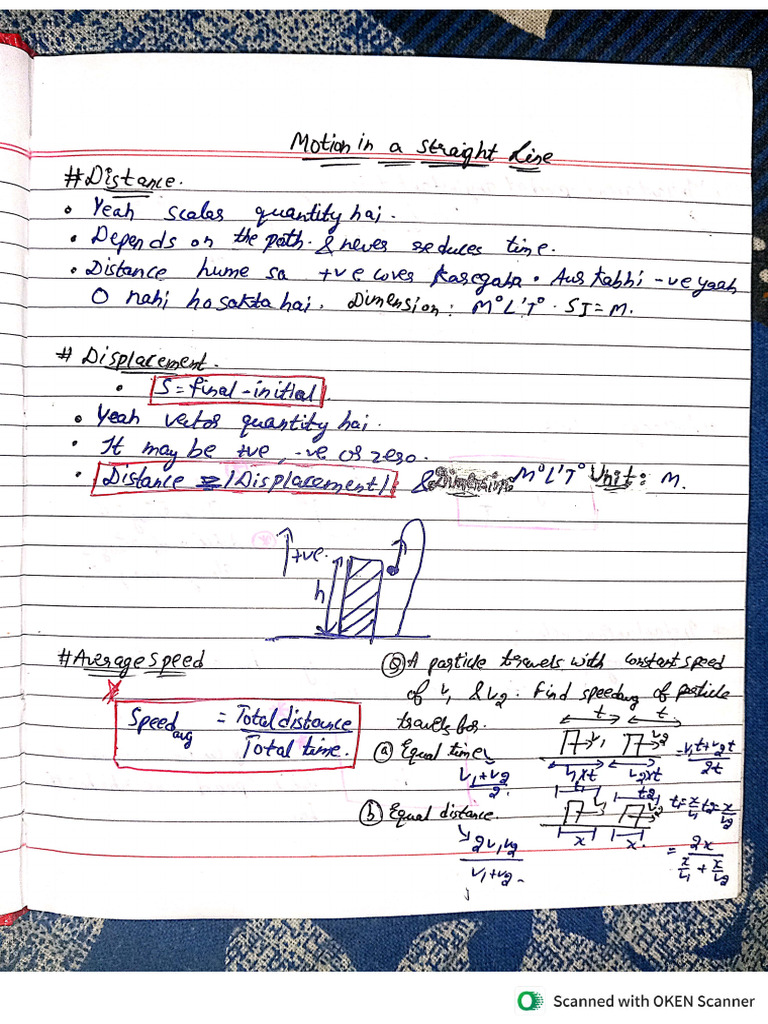 Motion in a straight Line
#Distance.
• Yeah scalar quantity hai.
• Depends on the path. & never reduces time.
• Distance hume sa +ve cover karegaha • Aur kabhi -ve yaah
0 nahi ho sakta hai. Dimension: M⁰L¹T⁰. SI = M.
# Displacement.
• S = final - initial
• Yeah vector quantity hai.
• It may be +ve, -ve or zero.
• Distance ≥ |Displacement| & Dimension: M⁰L¹T⁰ Unit: M.
+ve.
h
#Average Speed
Speedavg = Total distance
Total time.
Q A particle travels with constant speed
of v₁ & v₂. Find speedavg of particle
travels for.
t t
ⓐ Equal time
v₁ v₂
v₁xt v₂xt
= v₁t+v₂t
2t
v₁+v₂
2.
ⓑ Equal distance.
t₁ t₂
v₁ v₂
x x.
t₁=x/v₁ t₂=x/v₂
2v₁v₂
v₁+v₂.
= 2x
x/v₁ + x/v₂
Scanned with OKEN Scanner